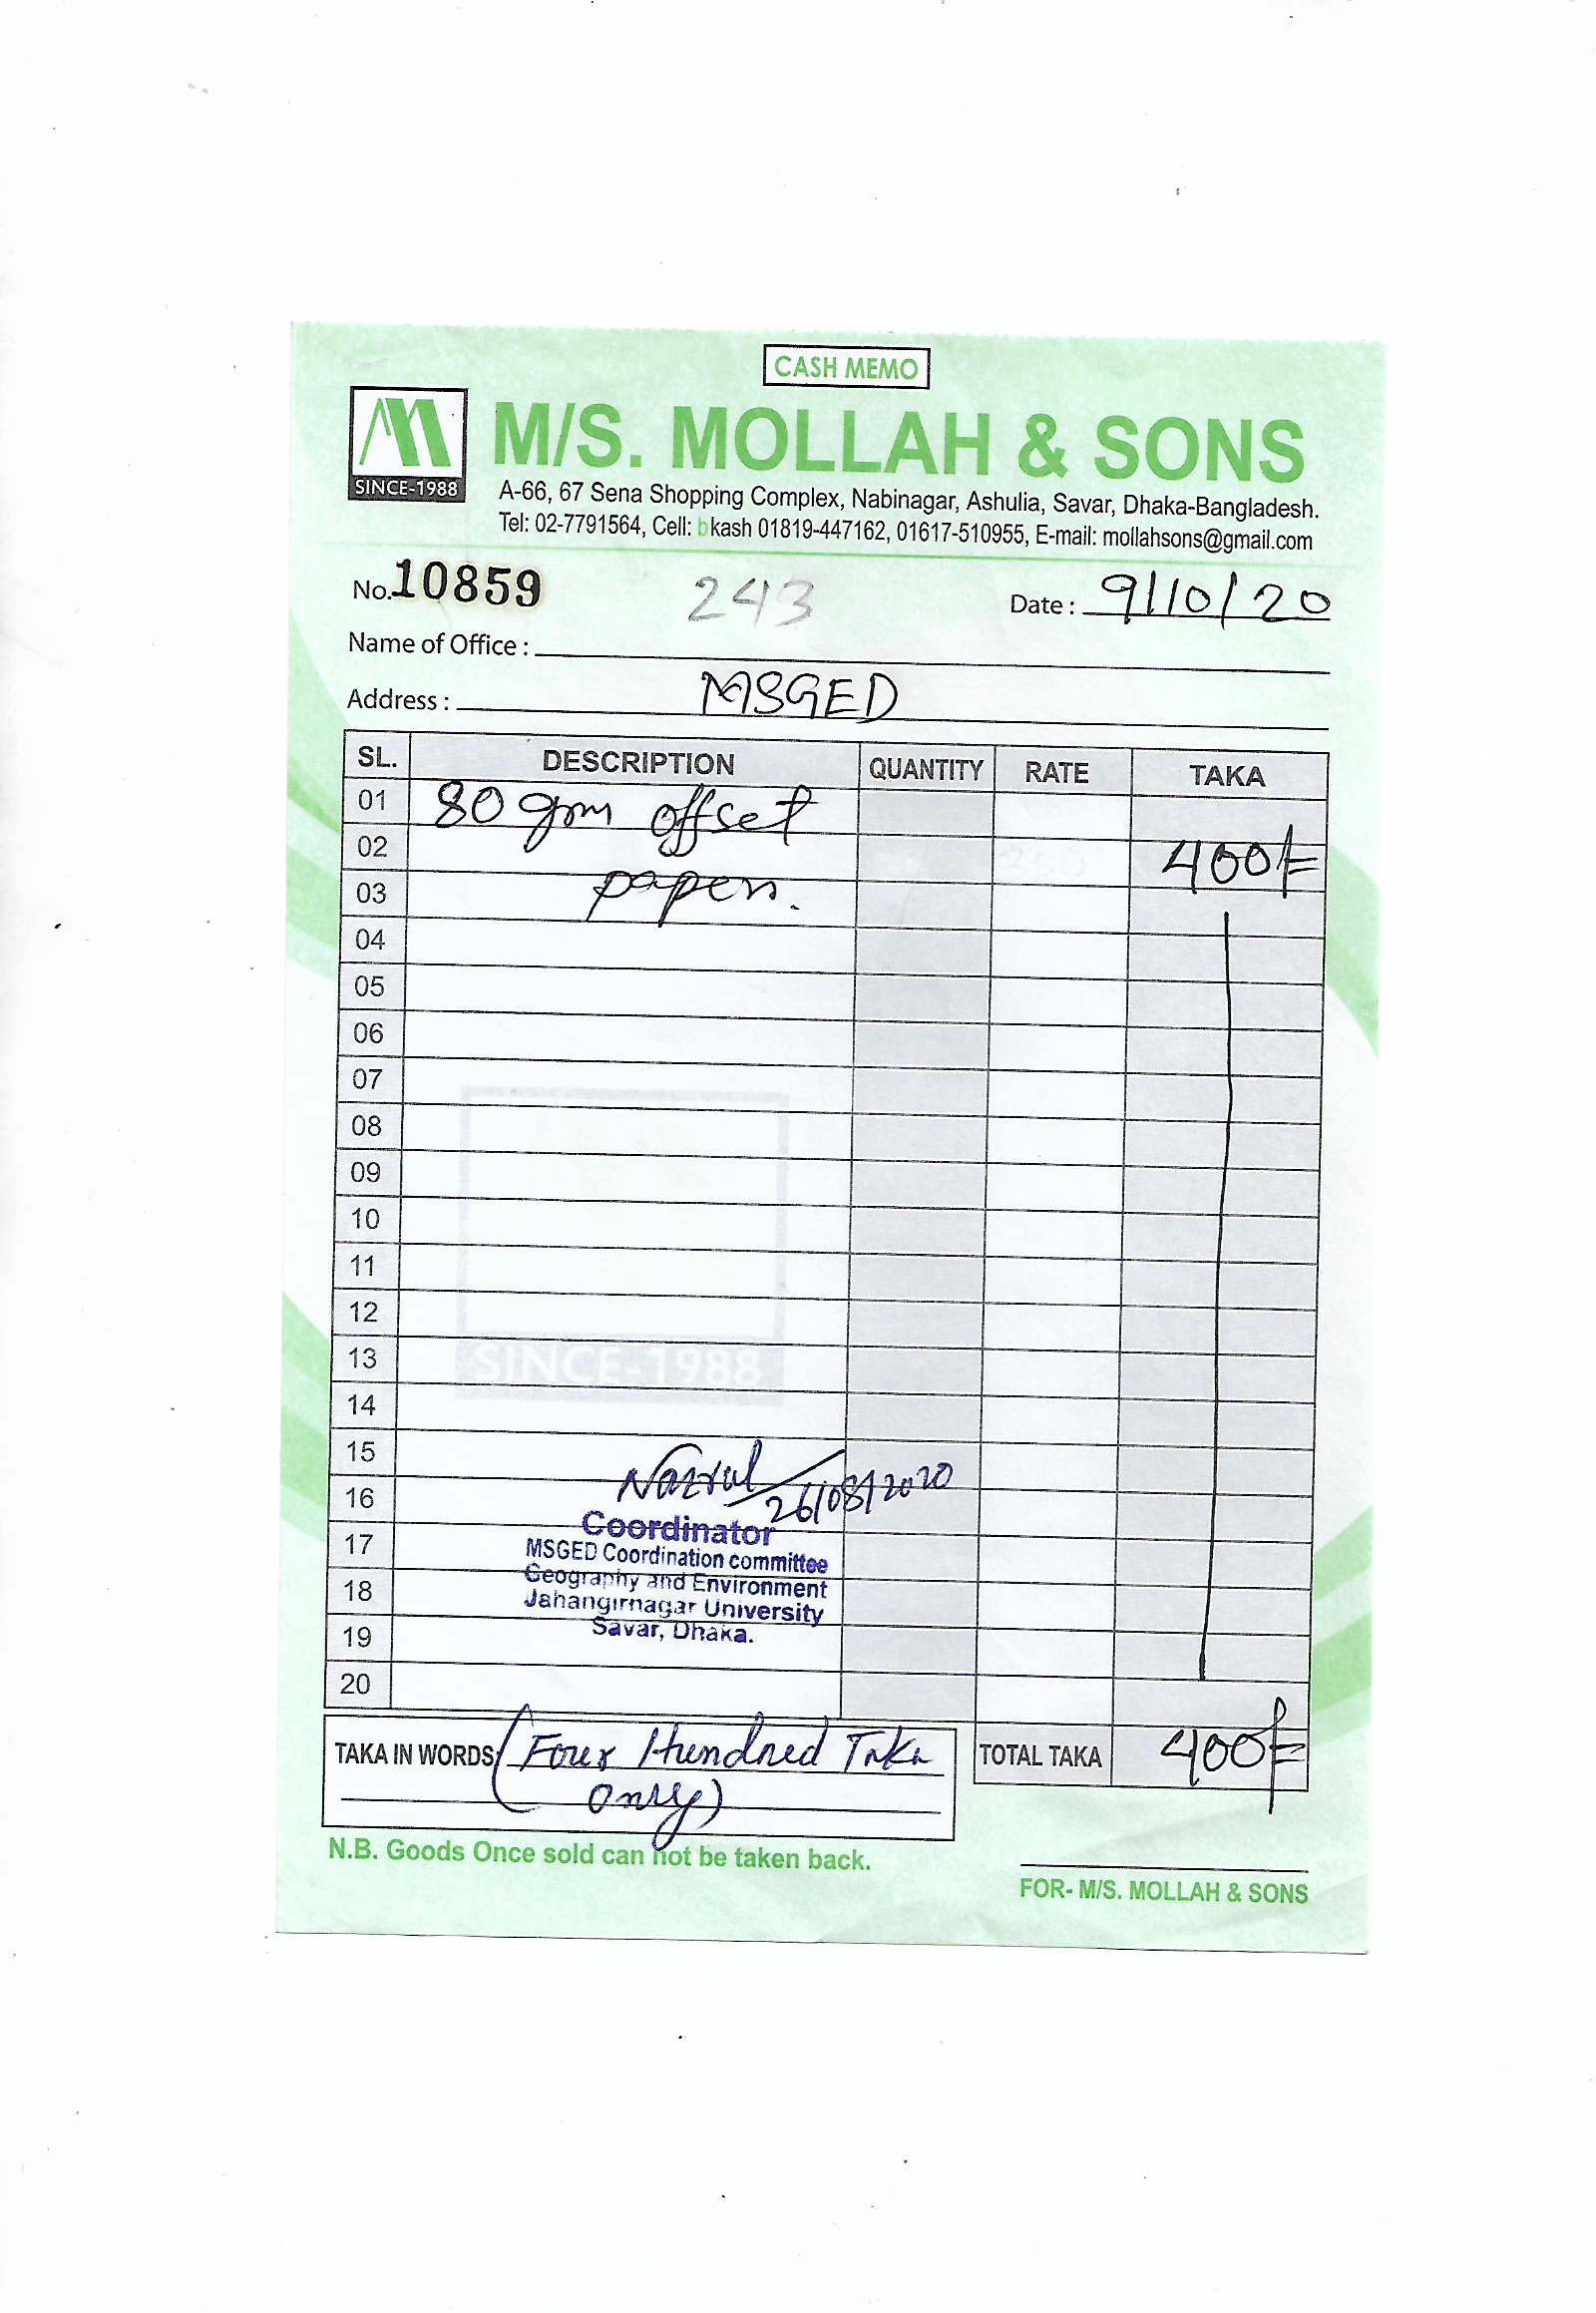 CASH MEMO
M/S. MOLLAH & SONS
SINCE-1988
A-66, 67 Sena Shopping Complex, Nabinagar, Ashulia, Savar, Dhaka-Bangladesh.
Tel: 02-7791564, Cell: bkash 01819-447162, 01617-510955, E-mail: mollahsons@gmail.com
No. 10859 243 Date : 9/10/20
Name of Office :
Address : MSGED
SL. DESCRIPTION QUANTITY RATE TAKA
01 80 gm offset
02 400/=
03 paper.
04
05
06
07
08
09
10
11
12
13 SINCE-1988
14
15
16 Nazrul 26/08/2020
Coordinator
17 MSGED Coordination committee
Geography and Environment
18 Jahangirnagar University
19 Savar, Dhaka.
20
TAKA IN WORDS (Four Hundred Taka TOTAL TAKA 400/=
only)
N.B. Goods Once sold can not be taken back.
FOR- M/S. MOLLAH & SONS